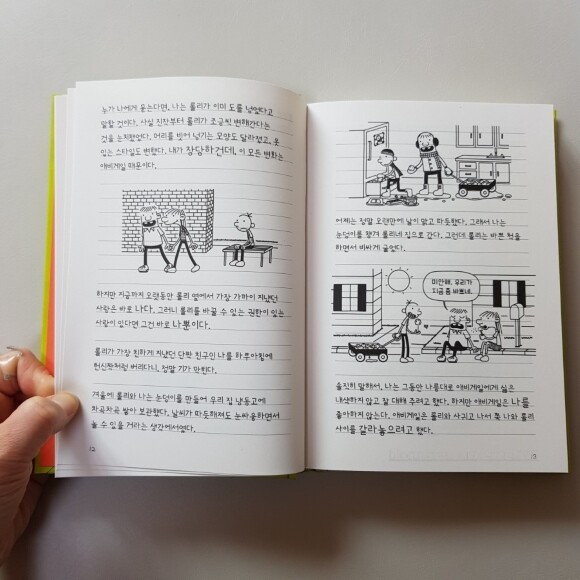 누가 나에게 묻는다면, 나는 롤리가 이미 도를 넘었다고
말할 것이다. 사실 진작부터 롤리가 조금씩 변해간다는
것을 눈치챘었다. 머리를 빗어 넘기는 모양도 달라졌고, 옷
입는 스타일도 변했다. 내가 장담하건데, 이 모든 변화는
애비게일 때문이다.
하지만 지금까지 오랫동안 롤리 옆에서 가장 가까이 지냈던
사람은 바로 나다. 그러니 롤리를 바꿀 수 있는 권한이 있는
사람이 있다면 그건 바로 나뿐이다.
롤리가 가장 친하게 지냈던 단짝 친구인 나를 하루아침에
헌신짝처럼 버리다니, 정말 기가 막힌다.
겨울에 롤리와 나는 눈덩이를 만들어 우리 집 냉동고에
차곡차곡 쌓아 보관했다. 날씨가 따뜻해져도 눈싸움하면서
놀 수 있을 거라는 생각에서였다.
12
어제는 정말 오랜만에 날이 맑고 따듯했다. 그래서 나는
눈덩이를 챙겨 롤리네 집으로 갔다. 그런데 롤리는 바쁜 척을
하면서 비싸게 굴었다.
미안해. 우리가
지금 좀 바쁘네.
솔직히 말해서, 나는 그동안 나름대로 애비게일에게 싫은
내색하지 않고 잘 대해 주려고 했다. 하지만 애비게일은 나를
좋아하지 않는다. 애비게일은 롤리와 사귀고 나서 쭉 나와 롤리
사이를 갈라놓으려고 했다.
13